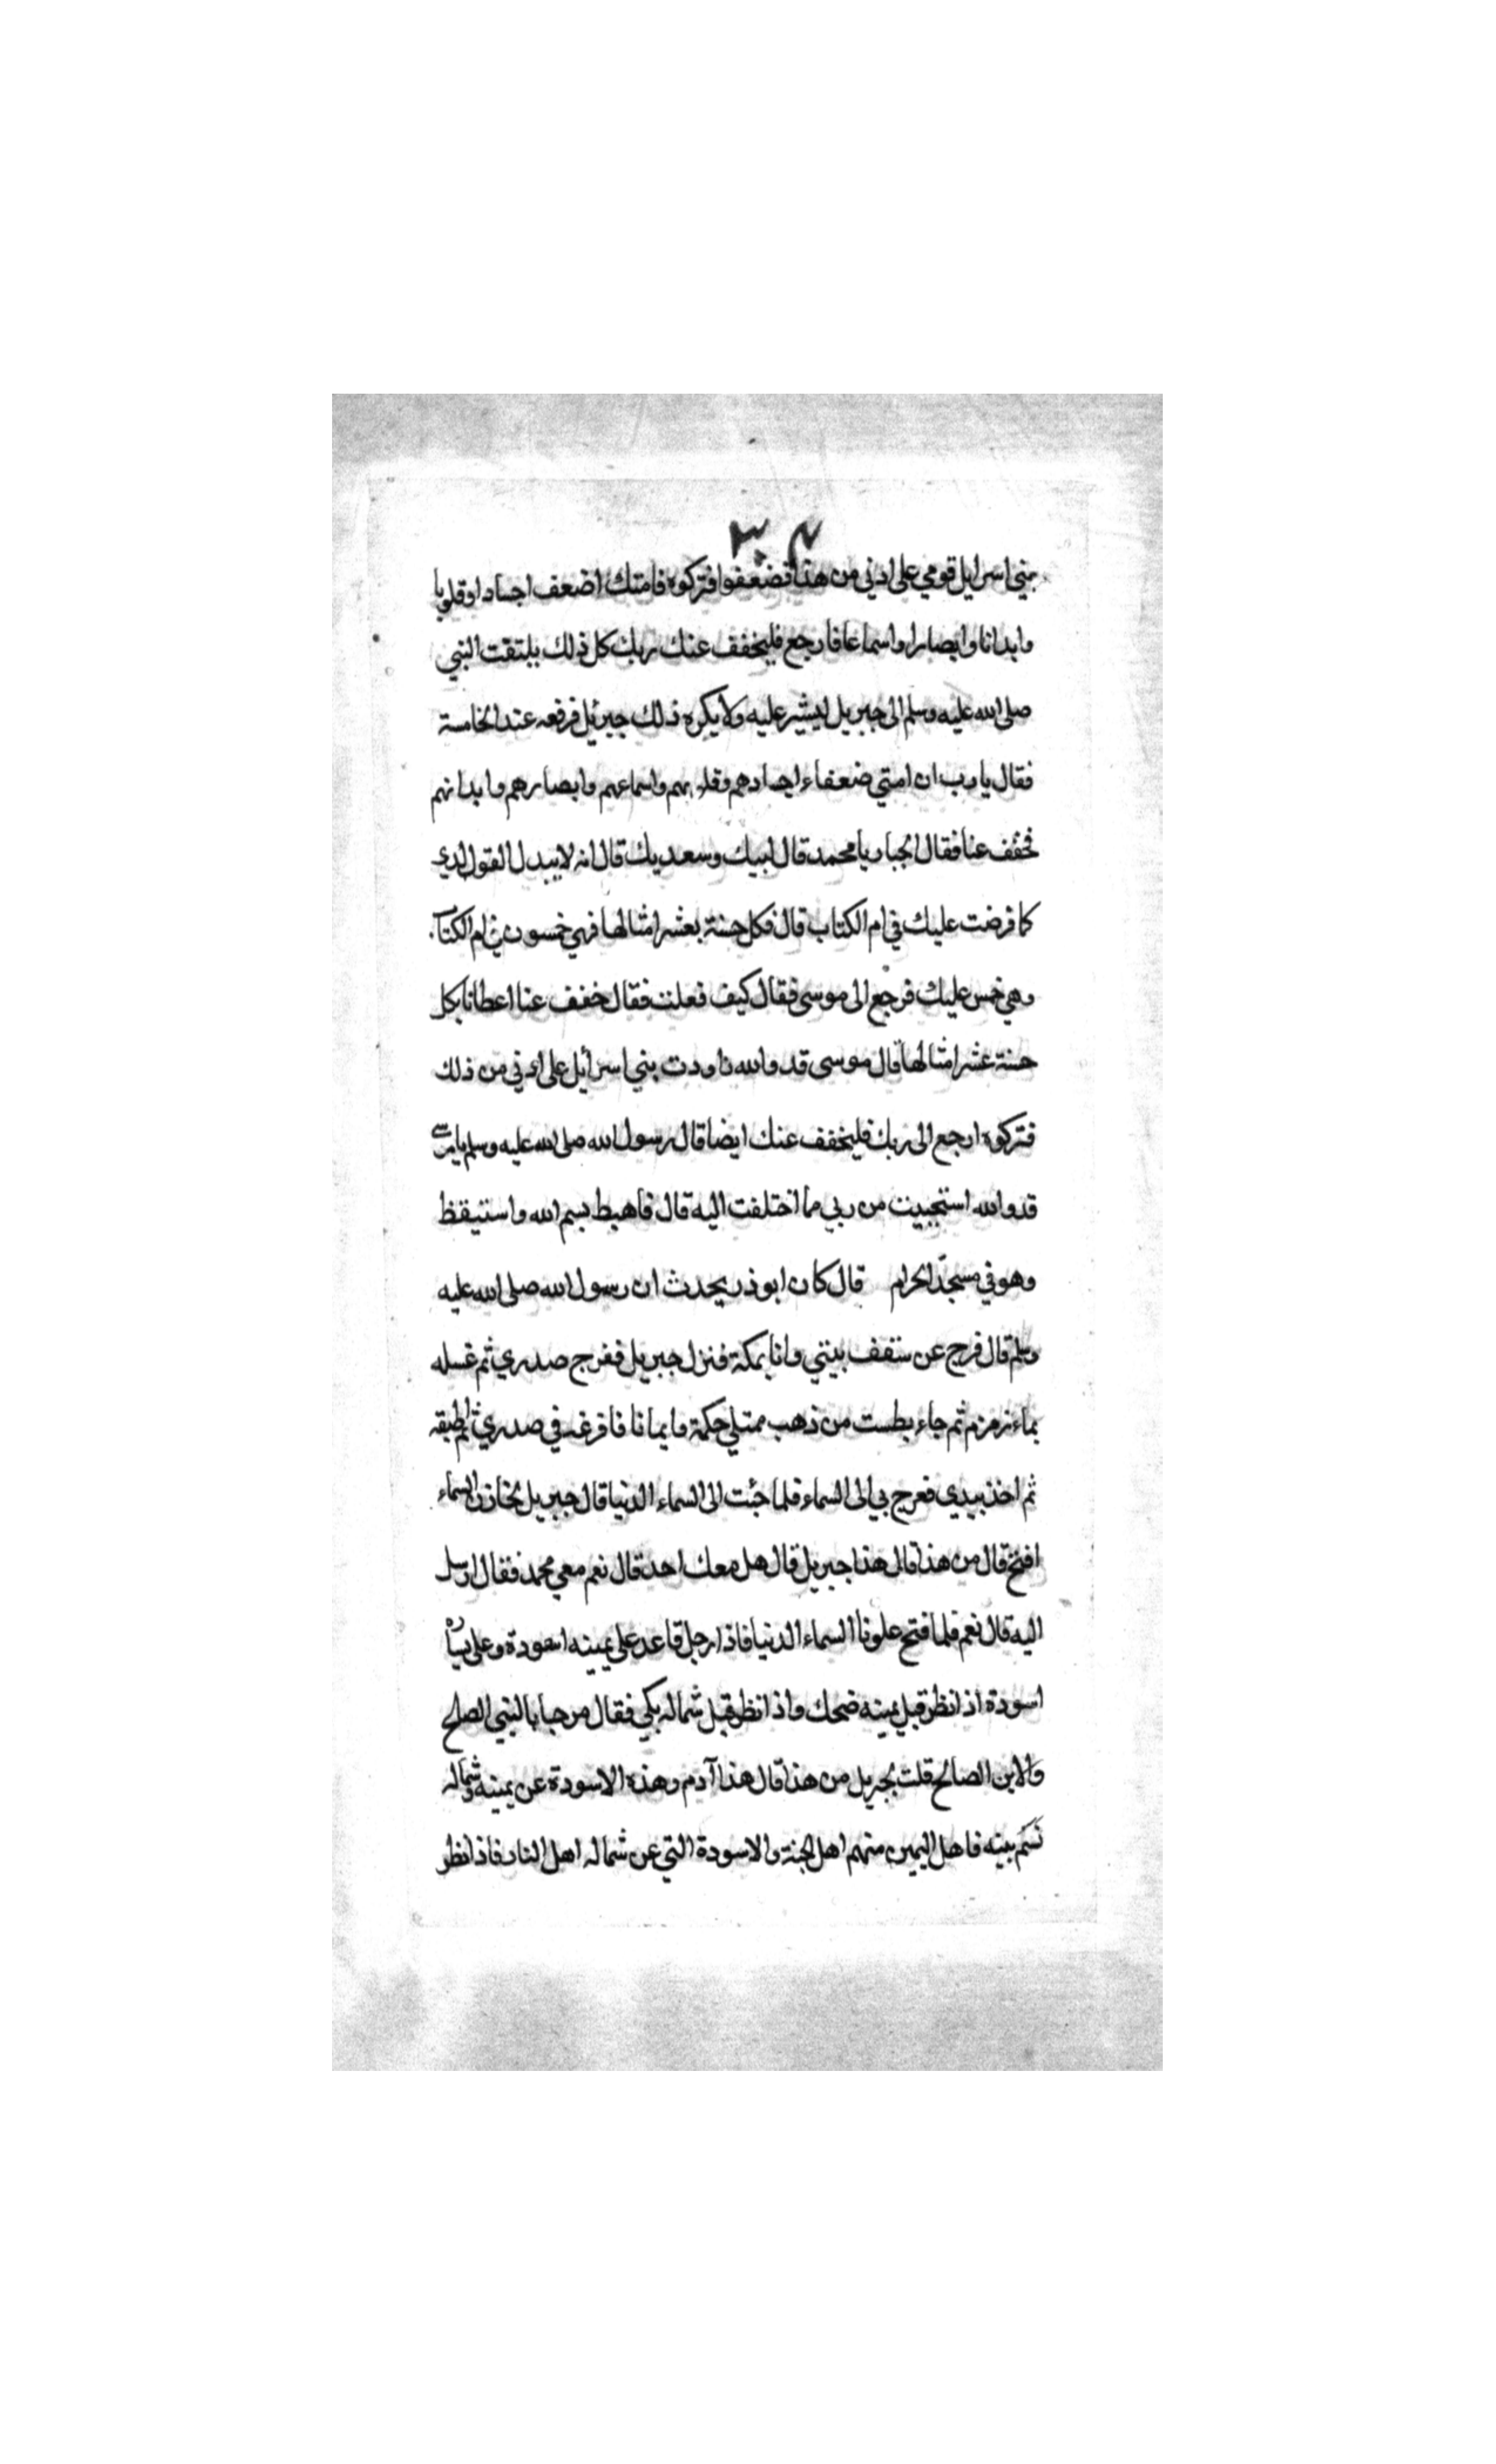 بني اسرايل قومي على ادني من هذا فضعفوا فتركوه فامتك اضعف اجسادا وقلوبا
وابدانا وابصارا واسماعا فارجع فليخفف عنك ربك كل ذلك يلتفت النبي
صلى الله عليه وسلم الى جبريل ليشير عليه ولا يكره ذلك جبرئيل فرفعه عند الخامسة
فقال يا رب ان امتي ضعفاء اجسادهم وقلوبهم واسماعهم وابصارهم وابدانهم
فخفف عنا فقال الجبار يا محمد قال لبيك وسعديك قال انه لا يبدل القول لدي
كما فرضت عليك في ام الكتاب قال فكل حسنة بعشر امثالها فهي خمسون في ام الكتاب
وهي خمس عليك فرجع الى موسى فقال كيف فعلت فقال خفف عنا اعطانا بكل
حسنة عشر امثالها قال موسى قد والله راودت بني اسرائيل على ادني من ذلك
فتركوه ارجع الى ربك فليخفف عنك ايضا قال رسول الله صلى الله عليه وسلم يا موسى
قد والله استحييت من ربي مما اختلفت اليه قال فاهبط بسم الله واستيقظ
وهو في مسجد الحرام قال كان ابو ذر يحدث ان رسول الله صلى الله عليه
وسلم قال فرج عن سقف بيتي وانا بمكة فنزل جبريل ففرج صدري ثم غسله
بماء زمزم ثم جاء بطست من ذهب ممتلي حكمة وايمانا فافرغه في صدري ثم اطبقه
ثم اخذ بيدي فعرج بي الى السماء فلما جئت الى السماء الدنيا قال جبريل لخازن السماء
افتح قال من هذا قال هذا جبريل قال هل معك احد قال نعم معي محمد فقال ارسل
اليه قال نعم فلما فتح علونا السماء الدنيا فاذا رجل قاعد على يمينه اسودة وعلى يساره
اسودة اذا نظر قبل يمينه ضحك واذا نظر قبل شماله بكي فقال مرحبا بالنبي الصالح
والابن الصالح قلت لجبريل من هذا قال هذا آدم وهذه الاسودة عن يمينه وشماله
نسم بنيه فاهل اليمين منهم اهل الجنة والاسودة التي عن شماله اهل النار فاذا نظر